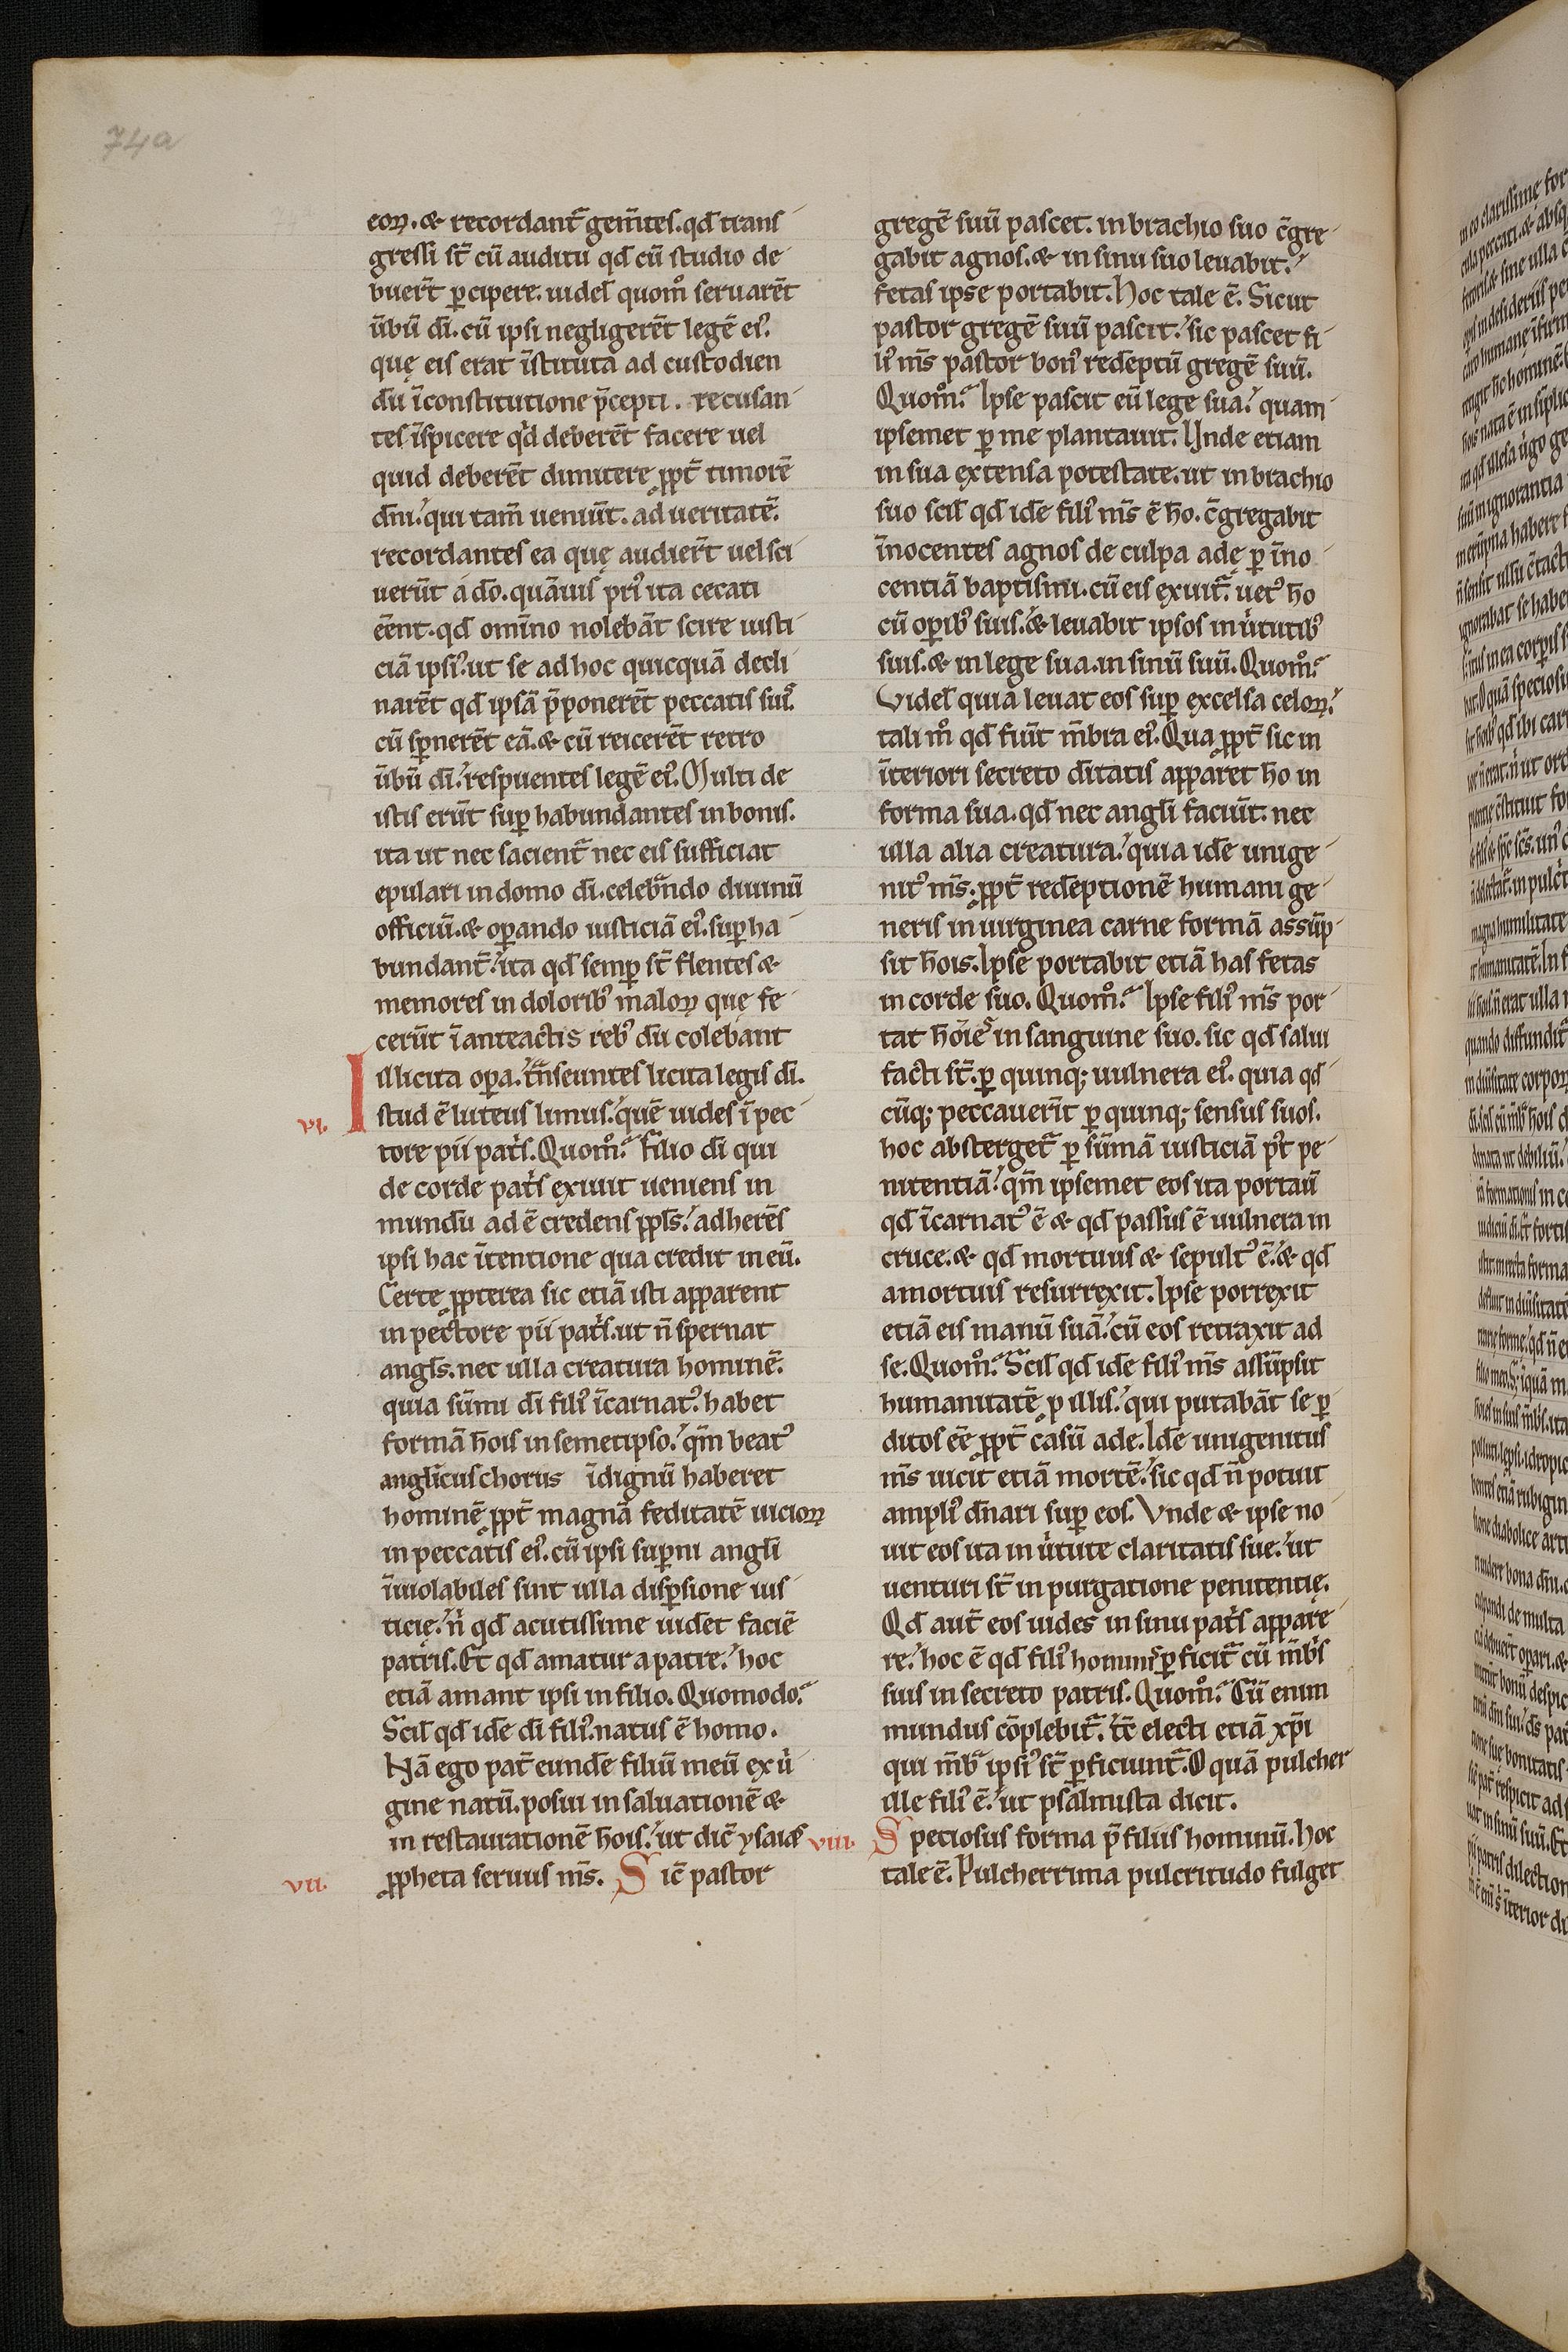 74a
eoꝝ. & recordant᷑ gem̅tes. qd̅ trans
gressi st̅ cu̅ auditu qd̅ cu̅ studio de
buer̅t ꝑcipere. uidel̅ quom̊ seruare̅t
u̅bu̅ di̅. cu̅ ipsi negligere̅t lege̅ ei᷒.
quę eis erat i̅stituta ad custodien
du̅ i̅ constitutione p̅cepti. recusan
tes i̅spicere qͥd debere̅t facere uel
quid debere̅t dimittere ꝓpt̅ timore̅
dn̅i.ʼ qui tam̅ ueniu̅t. ad ueritate̅.
recordantes ea quę audier̅t uel sci
ueru̅t á do̅. qua̅uis pri᷒ ita cecati
ee̅nt. qd̅ omi̅no noleba̅t scire iusti
cia̅ ipsi᷒. ut se ad hoc quicqua̅ decli
nare̅t qd̅ ipsa̅ p̅ponere̅t peccatis suis.
cu̅ sꝑnere̅t ea̅. & cu̅ reicere̅t retro
u̅bu̅ di̅.ʼ respuentes lege̅ ei᷒. Multi de
istis eru̅t suꝑ habundantes in bonis.
ita ut nec sacient᷑ nec eis sufficiat
epulari in domo di̅. celebᷓndo diuinu̅
officiu̅. & oꝑando iusticia̅ ei᷒. suꝑ ha
bundant᷑.ʼ ita qd̅ semꝑ st̅ flentes &
memores in dolorib᷒ maloꝝ quę fe
ceru̅t i̅ anteactis reb᷒ du̅ colebant
illicita oꝑa.ʼ tᷓnseuntes licita legis di̅.
vi. Istud e̅ luteus limus.ʼ que̅ uides i̅ pec
tore pii patͥs. Quom̊.ʼ Filio di̅ qui
de corde patͥs exiuit ueniens in
mundu̅ ad e̅ credens ppl̅s.ʼ adhere̅s
ipsi hac i̅tentione qua credit in eu̅.
Certe ꝓpterea sic etia̅ isti apparent
in pectore pii patͥs. ut n̅ spernat
angl̅s. nec ulla creatura homine̅.
quia su̅mi di̅ fili᷒ i̅carnat᷒. habet
forma̅ ho̅is in semetipso.ʼ qm̅ beat᷒
angl̅icus chorus i̅dignu̅ haberet
homine̅ ꝓpt̅ magna̅ feditate̅ uicioꝝ
in peccatis ei᷒. cu̅ ipsi suꝑni angl̅i
i̅uiolabiles sint ulla disꝑsione ius
ticię.ʼ nͥ qd̅ acutissime uidet facie̅
patris. Et qd̅ amatur a patre.ʼ hoc
etia̅ amant ipsi in filio. Quomodo.ʼ
Scil̅ qd̅ ide̅ di̅ fili᷒. natus e̅ homo.
Na̅ ego pat̅ eunde̅ filiu̅ meu̅ ex uͥ
gine natu̅. posui in saluatione̅ &
in restauratione̅ ho̅is.ʼ ut dic̅ ysaias
vii. ꝓpheta seruus m̅s. Sic̅ pastor
grege̅ suu̅ pascet. in brachio suo c̅gre
gabit agnos. & in sinu suo leuabit.ʼ
fetas ipse portabit. Hoc tale e̅. Sicut
pastor grege̅ suu̅ pascit.ʼ sic pascet fi
li᷒ m̅s pastor bon᷒ rede̅ptu̅ grege̅ suu̅.
Quom̊.ʼ Ipse pascit eu̅ lege sua.ʼ quam
ipsemet ꝑ me plantauit. Unde etiam
in sua extensa potestate. ut in brachio
suo scil̅ qd̅ ide̅ fili᷒ m̅s e̅ ho̅. c̅gregabit
i̅nocentes agnos de culpa adę ꝑ i̅no
centia̅ baptismi. cu̅ eis exuit᷑ uet᷒ ho̅
cu̅ oꝑib᷒ suis.ʼ & leuabit ipsos in uͥtutib᷒
suis. & in lege sua. in sinu̅ suu̅. Quom̊.ʼ
Videl̅ quia leuat eos suꝑ excelsa celoꝝ.ʼ
tali m̊ qd̅ fiu̅t m̅bra ei᷒. Qua ꝓpt̅ sic in
i̅teriori secreto di̅tatis apparet ho̅ in
forma sua. qd̅ nec angl̅i faciu̅t. nec
ulla alia creatura.ʼ quia ide̅ unige
nit᷒ m̅s. ꝓpt̅ rede̅ptione̅ humani ge
neris in uirginea carne forma̅ assu̅p
sit ho̅is. Ipse portabit etia̅ has fetas
in corde suo. Quom̊.ʼ Ipse fili᷒ m̅s por
tat ho̅ies in sanguine suo. sic qd̅ salui
facti st̅. ꝑ quinq; uulnera ei᷒. quia qd̅
cu̅q; peccaueri̅t ꝑ quinq; sensus suos.
hoc absterget᷑ ꝑ su̅ma̅ iusticia̅ p᷒t pe
nitentia̅.ʼ qm̅ ipsemet eos ita portau̅
qd̅ i̅carnat᷒ e̅ & qd̅ passus e̅ uulnera in
cruce. & qd̅ mortuus & sepult᷒ e̅.ʼ & qd̅
a mortuis resurrexit. Ipse porrexit
etia̅ eis manu̅ sua̅.ʼ cu̅ eos retraxit ad
se. Quom̊.ʼ Scil̅ qd̅ ide̅ fili᷒ m̅s assu̅psit
humanitate̅ ꝓ illis.ʼ qui putaba̅t se ꝑ
ditos ee̅ ꝓpt̅ casu̅ ade. Ide̅ unigenitus
m̅s uicit etia̅ morte̅.ʼ sic qd̅ n̅ potuit
ampli᷒ dn̅ari suꝑ eos. Vnde & ipse no
uit eos ita in uͥtute claritatis sue.ʼ ut
uenturi st̅ in purgatione penitentię.
Qd̅ aut̅ eos uides in sinu patͥs appare
re.ʼ hoc e̅ qd̅ fili᷒ hominis ꝑficit᷑ cu̅ m̅bͥs
suis in secreto patris. Quom̊.ʼ Cu̅ enim
mundus co̅plebit᷑.ʼ tc̅ electi etia̅ xp̅i
qui m̅bᷓ ipsi᷒ st̅ ꝑficiunt᷑. O qua̅ pulcher
ille fili᷒ e̅.ʼ ut psalmista dicit.
viii. Speciosus forma p̅ filiis hominu̅. Hoc
tale e̅. Pulcherrima pulcritudo fulget